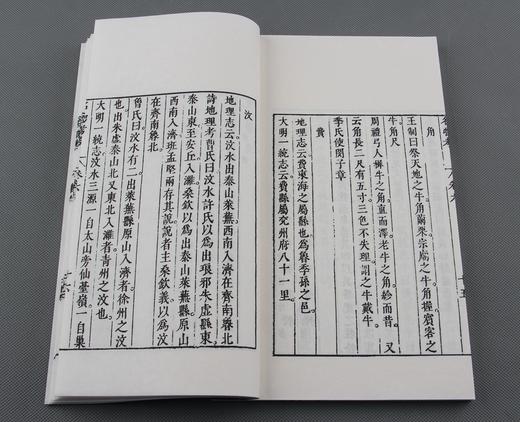 角
王制曰祭天地之牛角繭栗。宗廟之牛角握賓客之
牛角尺
周禮弓人稺牛之角直而澤老牛之角紾而昔。又
云角長二尺有五寸三色不失理謂之牛戴牛。
李氏使閔子章
費
地理志云費東海之屬縣也。為魯季孫之邑。
大明一統志云費縣屬兖州府八十一里。
汶
地理志云汶水出泰山萊蕪西南入濟在齊南魯北
詩地理考曹氏曰汶水許氏以爲出琅邪朱虛縣東
泰山東至安丘入濰。桑欽以爲出泰山萊蕪縣原山
西南入濟班孟堅兩存其說說者主桑欽義以爲汶
在齊南魯北。
曾氏曰汶水有二出萊蕪縣原山入濟者。徐州之汶
也。出朱虛泰山北又東北入濰者青州之汶也。
大明一統志汶水三源一自太山旁仙臺嶺一自巢